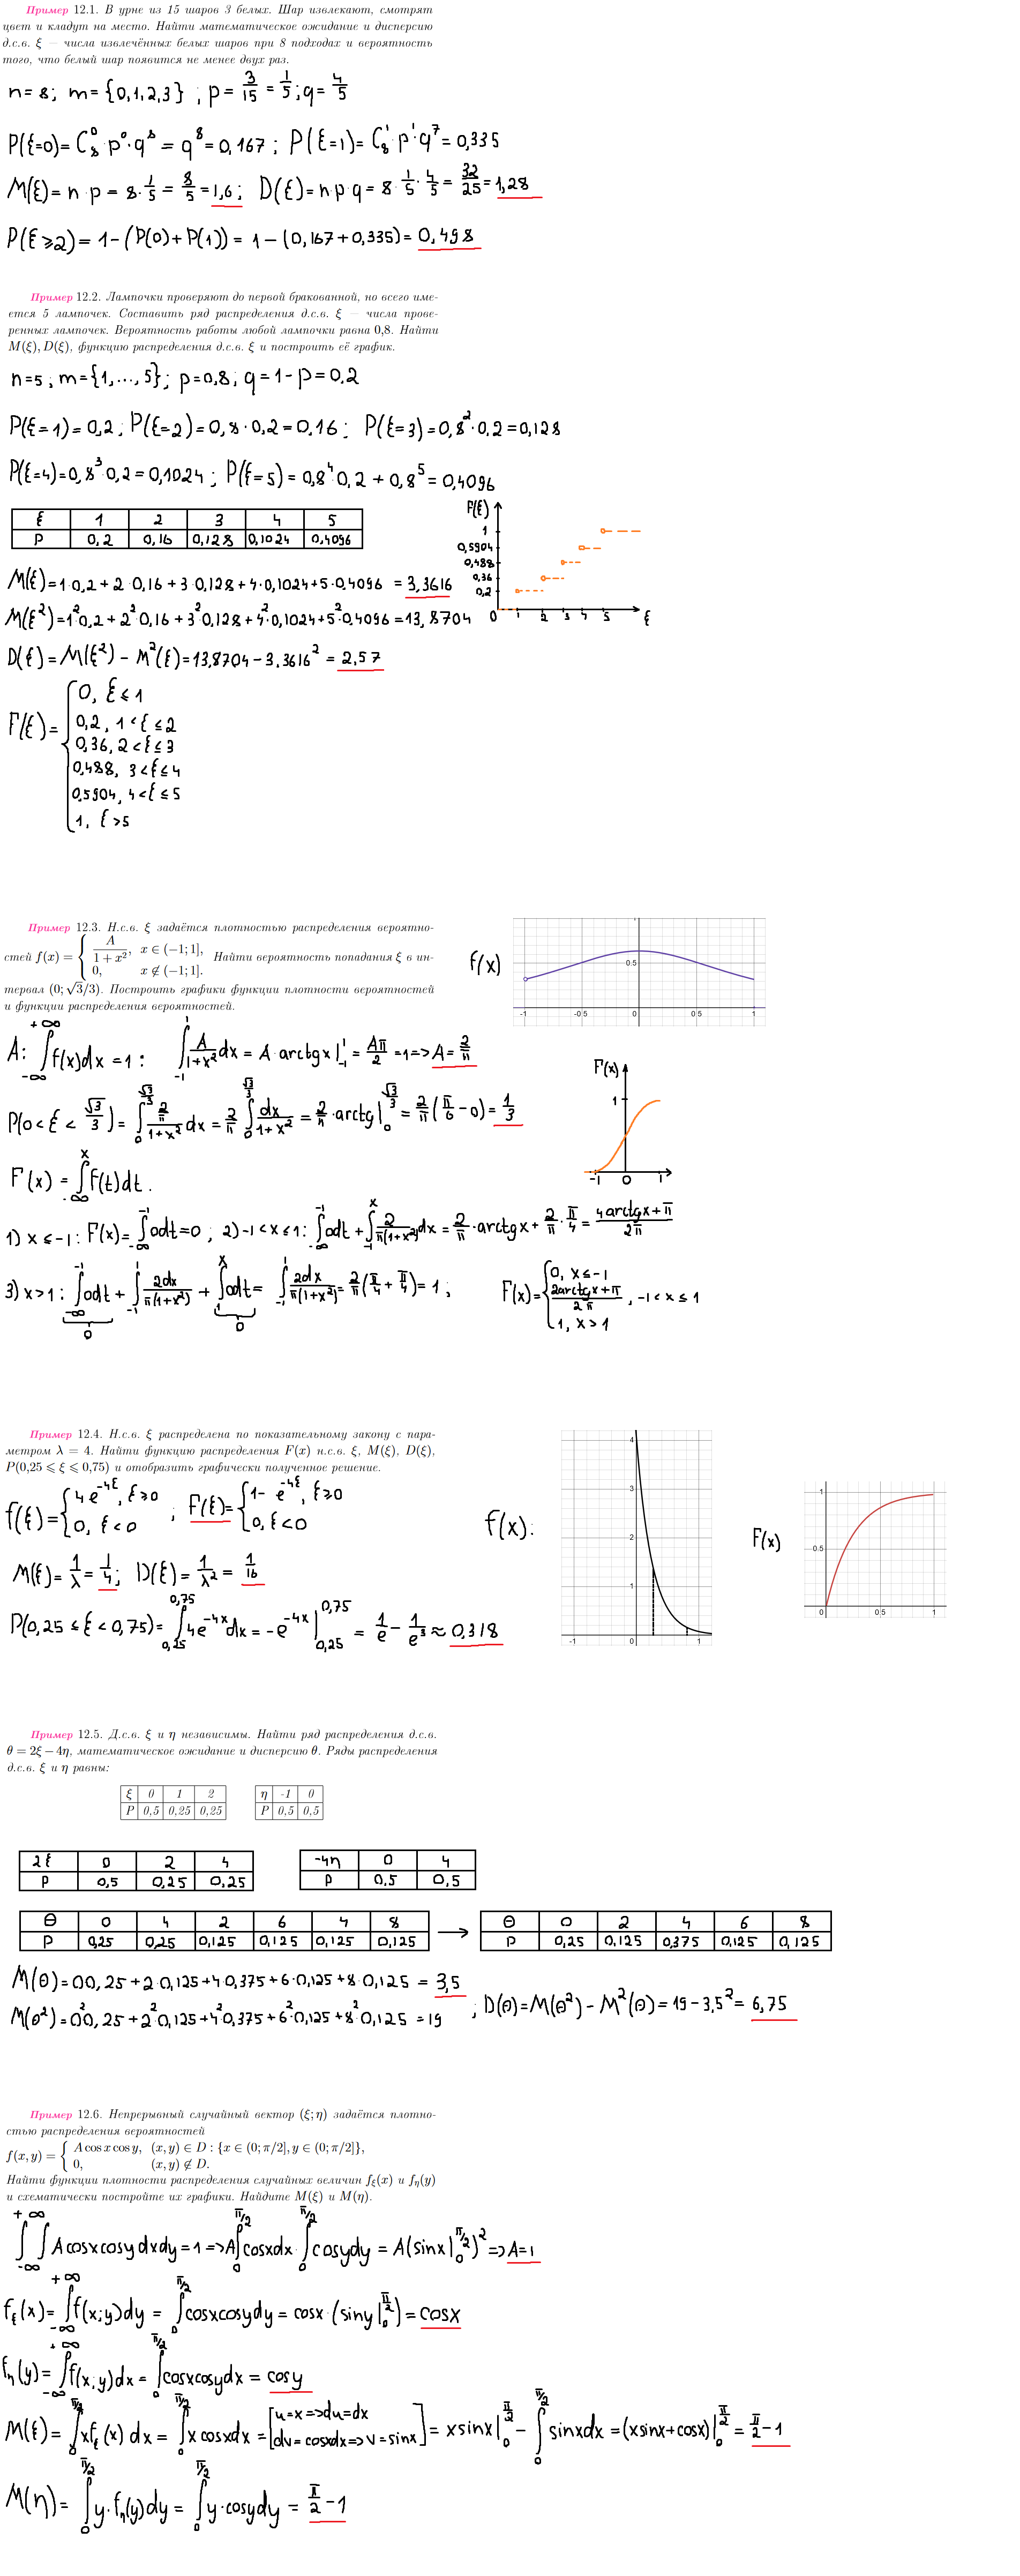 Пример 12.1. В урне из 15 шаров 3 белых. Шар извлекают, смотрят
цвет и кладут на место. Найти математическое ожидание и дисперсию
д.с.в. ξ — числа извлечённых белых шаров при 8 подходах и вероятность
того, что белый шар появится не менее двух раз.
n = 8; m = {0,1,2,3} ; p = 3/15 = 1/5; q = 4/5
P(ξ=0) = C₈⁰·p⁰·q⁸ = q⁸ = 0,167 ; P(ξ=1) = C₈¹·p¹·q⁷ = 0,335
M(ξ) = n·p = 8·1/5 = 8/5 = 1,6; D(ξ) = n p q = 8·1/5·4/5 = 32/25 = 1,28
P(ξ⩾2) = 1-(P(0)+P(1)) = 1-(0,167+0,335) = 0,498
Пример 12.2. Лампочки проверяют до первой бракованной, но всего име-
ется 5 лампочек. Составить ряд распределения д.с.в. ξ — числа прове-
ренных лампочек. Вероятность работы любой лампочки равна 0,8. Найти
M(ξ), D(ξ), функцию распределения д.с.в. ξ и построить её график.
n=5; m={1,...,5}; p=0,8; q=1-p=0.2
P(ξ=1)=0,2; P(ξ=2)=0,8·0,2=0,16; P(ξ=3)=0,8²·0,2=0,128
P(ξ=4)=0,8³·0,2=0,1024; P(ξ=5)=0,8⁴·0,2+0,8⁵=0,4096
ξ 1 2 3 4 5
P 0,2 0,16 0,128 0,1024 0,4096
F(ξ)
1
0,5904
0,488
0,36
0,2
0 1 2 3 4 5 ξ
M(ξ)=1·0,2+2·0,16+3·0,128+4·0,1024+5·0,4096 = 3,3616
M(ξ²)=1²·0,2+2²·0,16+3²·0,128+4²·0,1024+5²·0,4096=13,8704
D(ξ)=M(ξ²)-M²(ξ)=13,8704-3,3616²=2,57
F(ξ)= {
0, ξ≤1
0,2, 1<ξ≤2
0,36, 2<ξ≤3
0,488, 3<ξ≤4
0,5904, 4<ξ≤5
1, ξ>5
Пример 12.3. Н.с.в. ξ задаётся плотностью распределения вероятно-
стей f(x) = { A/(1+x²), x ∈ (−1; 1], 0, x ∉ (−1; 1]. Найти вероятность попадания ξ в ин-
тервал (0; √3/3). Построить графики функции плотности вероятностей
и функции распределения вероятностей.
f(x)
0.5
-1 -0.5 0 0.5 1
A: ∫_{-∞}^{+∞} f(x)dx = 1: ∫_{-1}^{1} A/(1+x²) dx = A·arctgx|_{-1}^{1} = Aπ/2 = 1 => A = 2/π
P(0<ξ<√3/3) = ∫_0^{√3/3} (2/π)/(1+x²) dx = 2/π ∫_0^{√3/3} dx/(1+x²) = 2/π·arctg|_0^{√3/3} = 2/π(π/6-0) = 1/3
F(x)
1
-1 0 1
F(x) = ∫_{-∞}^{x} f(t)dt.
1) x≤-1: F(x)=∫_{-∞}^{-1} 0dt=0; 2) -1<x≤1: ∫_{-∞}^{-1} 0dt + ∫_{-1}^{x} 2/(π(1+x²)) dx = 2/π·arctgx + 2/π·π/4 = (4arctgx+π)/2π
3) x>1: ∫_{-∞}^{-1} 0dt + ∫_{-1}^{1} 2dx/(π(1+x²)) + ∫_1^x 0dt = ∫_{-1}^{1} 2dx/(π(1+x²)) = 2/π(π/4+π/4) = 1;
0 0
F(x)= {
0, x≤-1
(2arctgx+π)/2π, -1<x≤1
1, x>1
Пример 12.4. Н.с.в. ξ распределена по показательному закону с пара-
метром λ = 4. Найти функцию распределения F(x) н.с.в. ξ, M(ξ), D(ξ),
P(0,25 ⩽ ξ ⩽ 0,75) и отобразить графически полученное решение.
f(ξ)={ 4e^{-4ξ}, ξ⩾0; 0, ξ<0 ; F(ξ)={ 1-e^{-4ξ}, ξ⩾0; 0, ξ<0
M(ξ)=1/λ=1/4; D(ξ)=1/λ²=1/16
P(0,25≤ξ<0,75)=∫_{0,25}^{0,75} 4e^{-4x}dx = -e^{-4x}|_{0,25}^{0,75} = 1/e - 1/e³ ≈ 0,318
f(x):
4
3
2
1
-1 0 1
F(x)
1
0.5
0 0.5 1
Пример 12.5. Д.с.в. ξ и η независимы. Найти ряд распределения д.с.в.
θ = 2ξ − 4η, математическое ожидание и дисперсию θ. Ряды распределения
д.с.в. ξ и η равны:
ξ 0 1 2
P 0,5 0,25 0,25
η -1 0
P 0,5 0,5
2ξ 0 2 4
P 0,5 0,25 0,25
-4η 0 4
P 0,5 0,5
θ 0 4 2 6 4 8
P 0,25 0,25 0,125 0,125 0,125 0,125
→
θ 0 2 4 6 8
P 0,25 0,125 0,375 0,125 0,125
M(θ)=0·0,25+2·0,125+4·0,375+6·0,125+8·0,125 = 3,5
M(θ²)=0²·0,25+2²·0,125+4²·0,375+6²·0,125+8²·0,125=19
; D(θ)=M(θ²)-M²(θ)=19-3,5²=6,75
Пример 12.6. Непрерывный случайный вектор (ξ; η) задаётся плотно-
стью распределения вероятностей
f(x, y) = { A cos x cos y, (x, y) ∈ D : {x ∈ (0; π/2], y ∈ (0; π/2]},
0, (x, y) ∉ D.
Найти функции плотности распределения случайных величин f_ξ(x) и f_η(y)
и схематически постройте их графики. Найдите M(ξ) и M(η).
∫∫_{-∞}^{+∞} A cosx cosy dxdy = 1 => A∫_0^{π/2} cosxdx·∫_0^{π/2} cosydy = A(sinx|_0^{π/2})² => A=1
f_ξ(x)=∫_{-∞}^{+∞} f(x;y)dy = ∫_0^{π/2} cosxcosydy = cosx·(siny|_0^{π/2}) = cosx
f_η(y)=∫_{-∞}^{+∞} f(x;y)dx = ∫_0^{π/2} cosxcosydx = cosy
M(ξ)=∫_0^{π/2} xf_ξ(x)dx = ∫_0^{π/2} x cosxdx = [u=x=>du=dx dv=cosxdx=>v=sinx] = xsinx|_0^{π/2} - ∫_0^{π/2} sinxdx = (xsinx+cosx)|_0^{π/2} = π/2-1
M(η)=∫_0^{π/2} y·f_η(y)dy = ∫_0^{π/2} y·cosydy = π/2-1